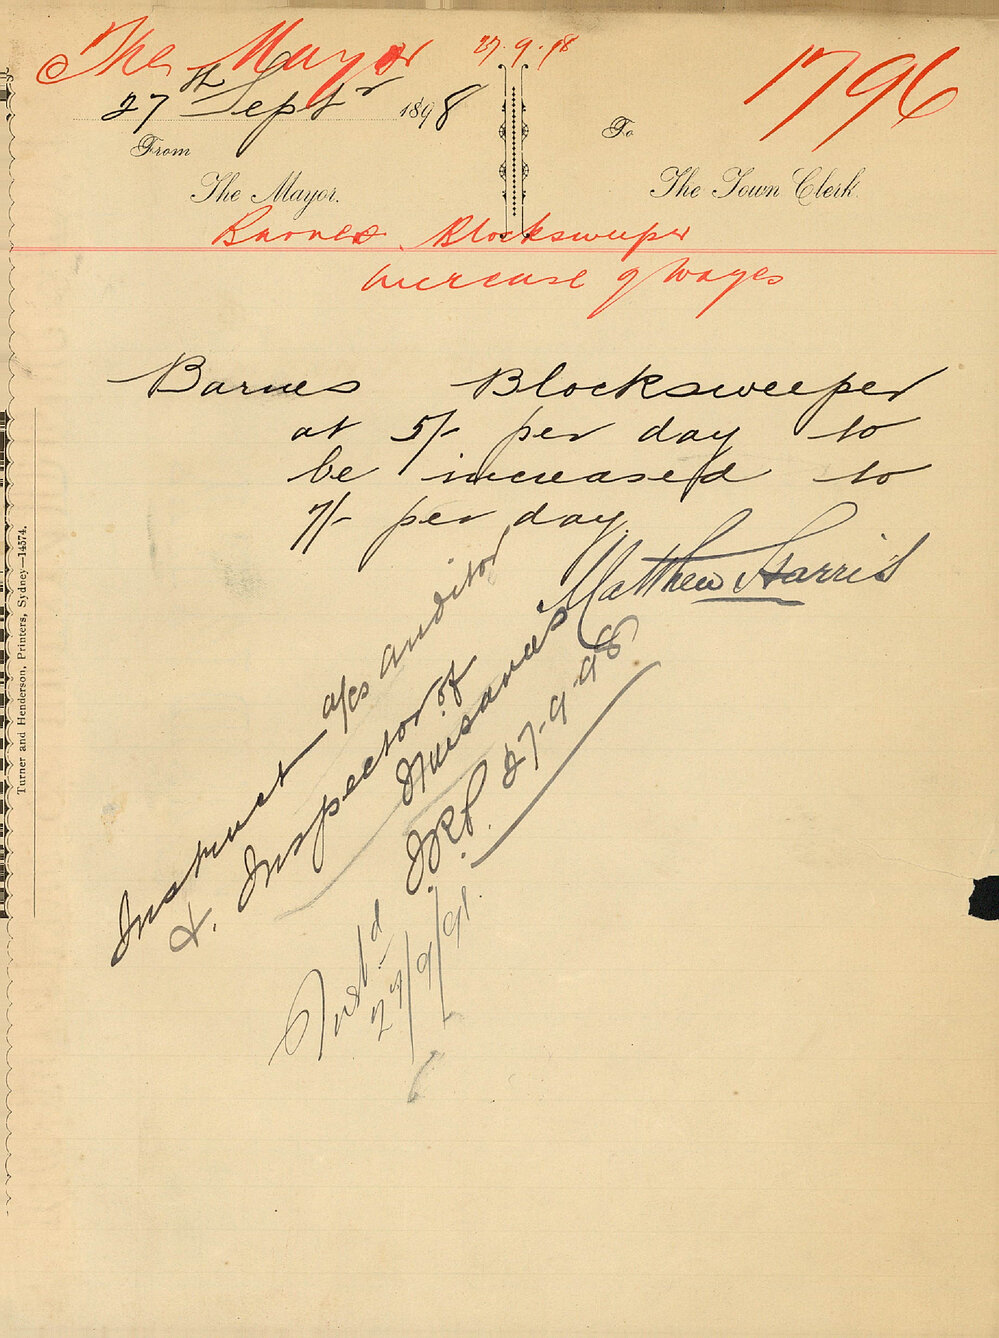 The Mayor 27.9.98
1796
27th Septr 1898
From
To
The Mayor.
The Town Clerk.
Barnes Blocksweeper
increase of wages
Barnes Blocksweeper
at 5/- per day to
be increased to
7/- per day.
Matthew Harris
Instruct a/cs auditor
&. Inspector of
Nuisances
27-9-98
Inst'd
27/9/98.
Turner and Henderson, Printers, Sydney—14574.